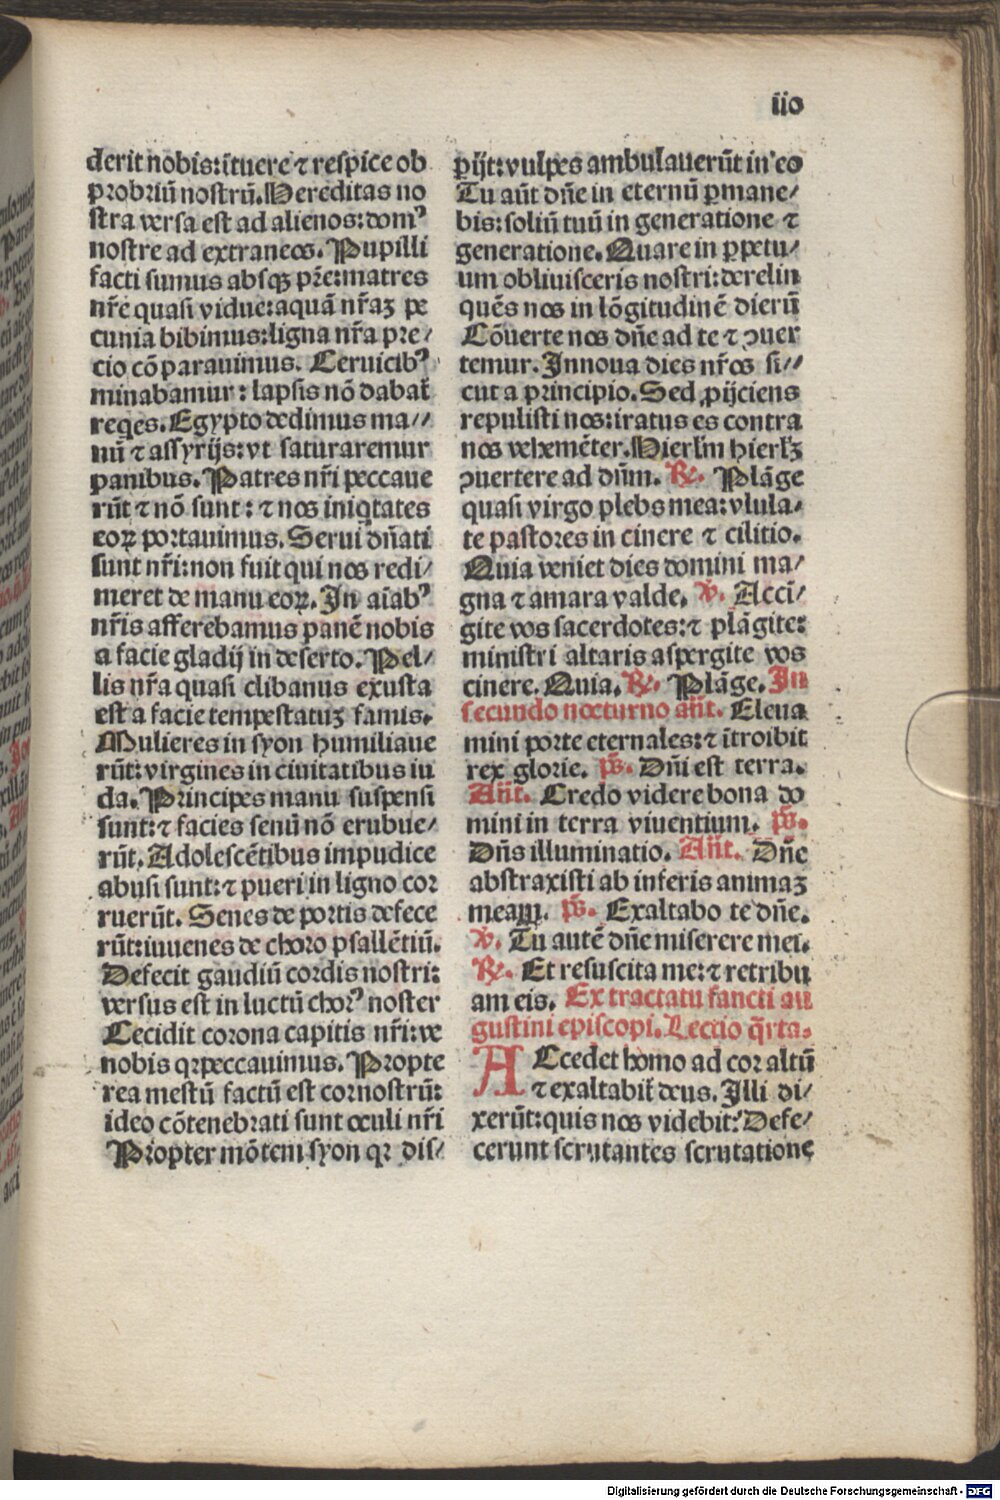 iio
derit nobis:ītuere ⁊ respice ob
probriū nostrū. Hereditas no
stra versa est ad alienos:domꝰ
nostre ad extraneos. Pupilli
facti sumus absqꝫ pr̄e:matres
nr̄e quasi vidue:aquā nr̄aꝫ pe
cunia bibimus:ligna nr̄a pre/
cio cōparauimus. Ceruicibꝰ
minabamur: lapsis nō dabat̄
reqes. Egypto dedimus ma//
nū ⁊ assyrijs:vt saturaremur
panibus. Patres nr̄i peccaue
rūt ⁊ nō sunt: ⁊ nos iniqtates
eoꝝ portauimus. Serui dn̄ati
sunt nr̄i:non fuit qui nos redi/
meret de manu eoꝝ. In aīabꝰ
nr̄is afferebamus panē nobis
a facie gladij in deserto. Pel/
lis nr̄a quasi clibanus exusta
est a facie tempestatuꝫ famis.
Mulieres in syon humiliaue
rūt:virgines in ciuitatibus iu
da. Principes manu suspensi
sunt:⁊ facies senū nō erubue/
rūt. Adolescētibus impudice
abusi sunt:⁊ pueri in ligno cor
ruerūt. Senes de portis defece
rūt:iuuenes de choro psallētiū.
Defecit gaudiū cordis nostri:
versus est in luctū chorꝰ noster
Cecidit corona capitis nr̄i:ve
nobis qꝛ peccauimus. Propte
rea mestū factū est cor nostrū:
ideo cōtenebrati sunt oculi nr̄i
Propter mōtem syon qꝛ dis/
perijt:vulpes ambulauerūt in eo
Tu aūt dn̄e in eternū ꝑmane/
bis:soliū tuū in generatione ⁊
generatione. Quare in ꝑpetu/
um obliuisceris nostri:derelin
quēs nos in lōgitudinē dierū
Cōuerte nos dn̄e ad te ⁊ ꝯuer
temur. Innoua dies nr̄os si//
cut a principio. Sed ꝓijciens
repulisti nos:iratus es contra
nos vehemēter. Hierl̄m hierl̄ꝫ
ꝯuertere ad dn̄m. ℟. Plāge
quasi virgo plebs mea:vlula/
te pastores in cinere ⁊ cilitio.
Quia veniet dies domini ma/
gna ⁊ amara valde. ℣. Acci/
gite vos sacerdotes:⁊ plāgite:
ministri altaris aspergite vos
cinere. Quia. ℟. Plāge. In
secundo nocturno an̄t. Eleua
mini porte eternales:⁊ ītroibit
rex glorie. p̄s. Dn̄i est terra.
An̄t. Credo videre bona do
mini in terra viuentium. p̄s.
Dn̄s illuminatio. An̄t. Dn̄e
abstraxisti ab inferis animaꝫ
meam. p̄s. Exaltabo te dn̄e.
℣. Tu autē dn̄e miserere mei.
℟. Et resuscita me:⁊ retribu
am eis. Ex tractatu sancti au
gustini episcopi. Lectio q̄rta.
ACcedet homo ad cor altū
⁊ exaltabit̄ deus. Illi di/
xerūt:quis nos videbit: Defe/
cerunt scrutantes scrutatione
Digitalisierung gefördert durch die Deutsche Forschungsgemeinschaft - DFG